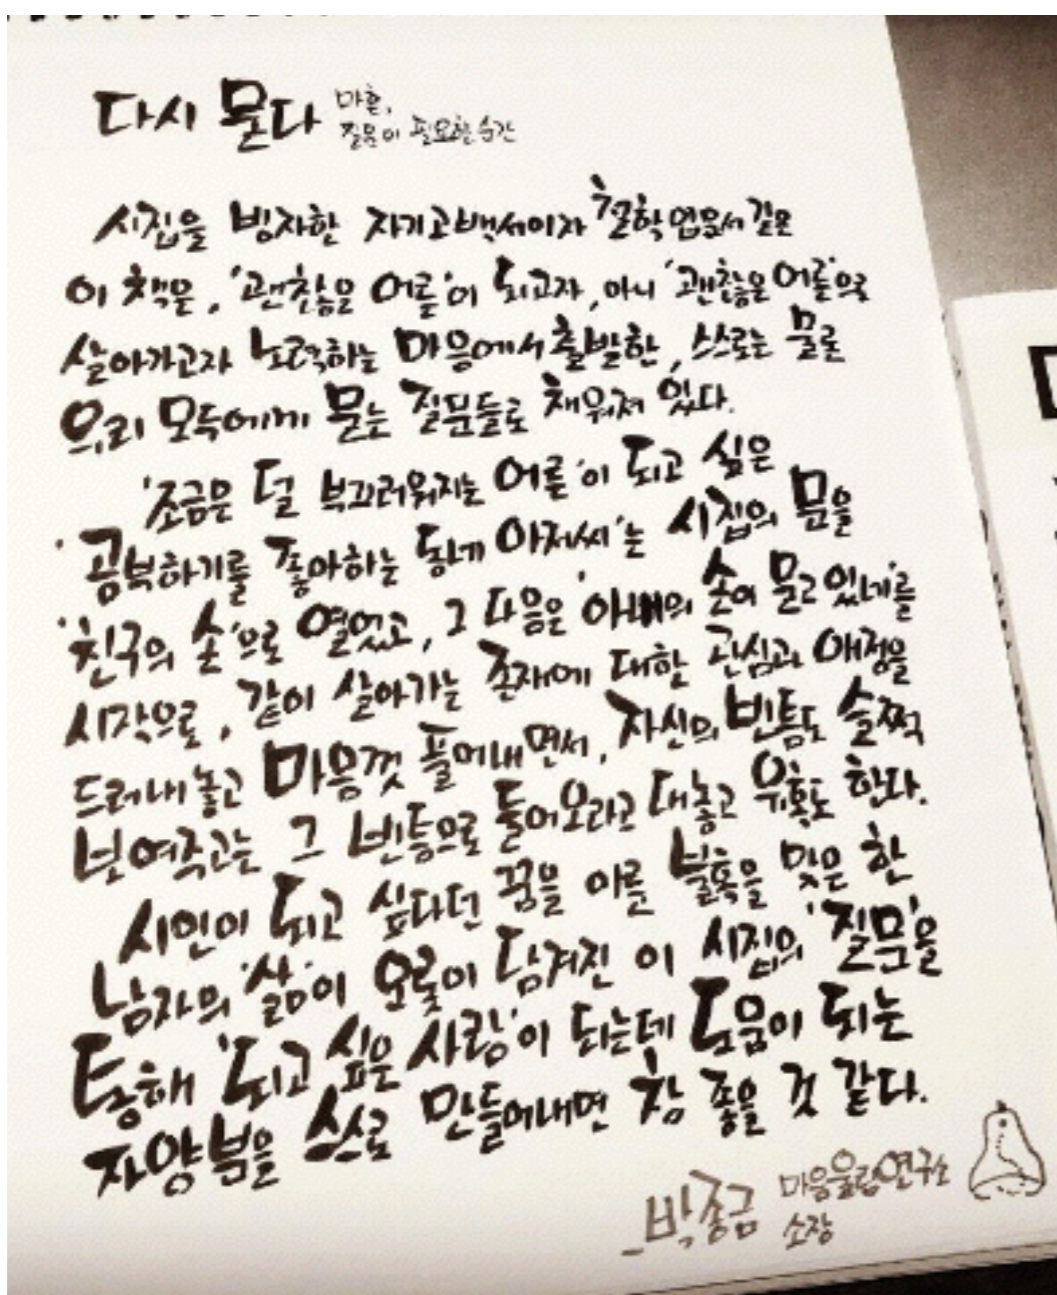 다시 묻다 마흔,
질문이 필요한 순간
시집을 빙자한 자기고백서이자 철학입문서 같은
이 책은, '괜찮은 어른'이 되고자, 아니 '괜찮은 어른'으로
살아가고자 노력하는 마음에서 출발한, 스스로는 물론
우리 모두에게 묻는 질문들로 채워져 있다.
'조금은 덜 부끄러워지는 어른'이 되고 싶은
'공부하기를 좋아하는 동네 아저씨'는 시집의 문을
'친구의 손'으로 열었고, 그 다음은 '아빠의 손이 묻고 있네'를
시작으로, 같이 살아가는 존재에 대한 관심과 애정을
드러내놓고 마음껏 풀어내면서, 자신의 빈틈도 슬쩍
보여주고는 그 빈틈으로 들어오라고 대놓고 유혹도 한다.
시인이 되고 싶다던 꿈을 이룬 불혹을 맞은 한
남자의 '삶'이 오롯이 담겨진 이 시집의 '질문'을
통해 '되고 싶은 사람'이 되는데 도움이 되는
자양분을 스스로 만들어내면 참 좋을 것 같다.
_박종금 마음울림연구소
소장